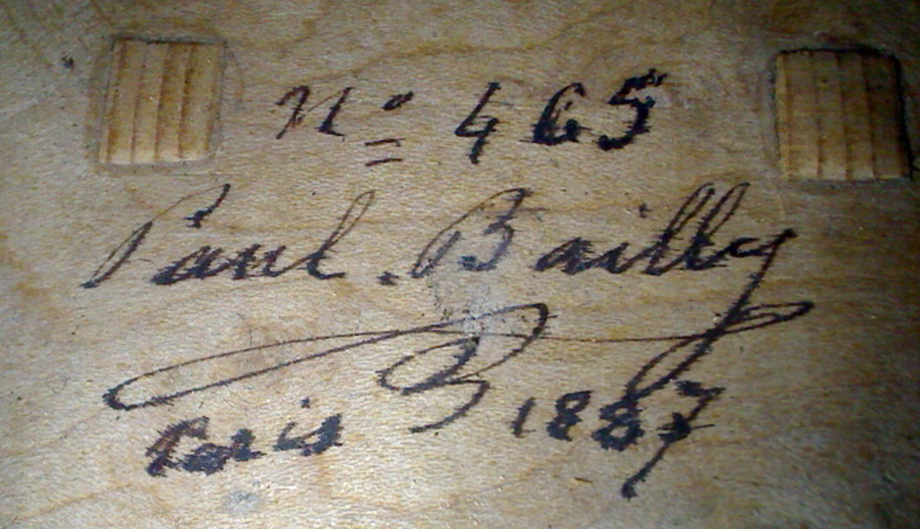 Nº 465
Paul. Bailly
Paris 1887